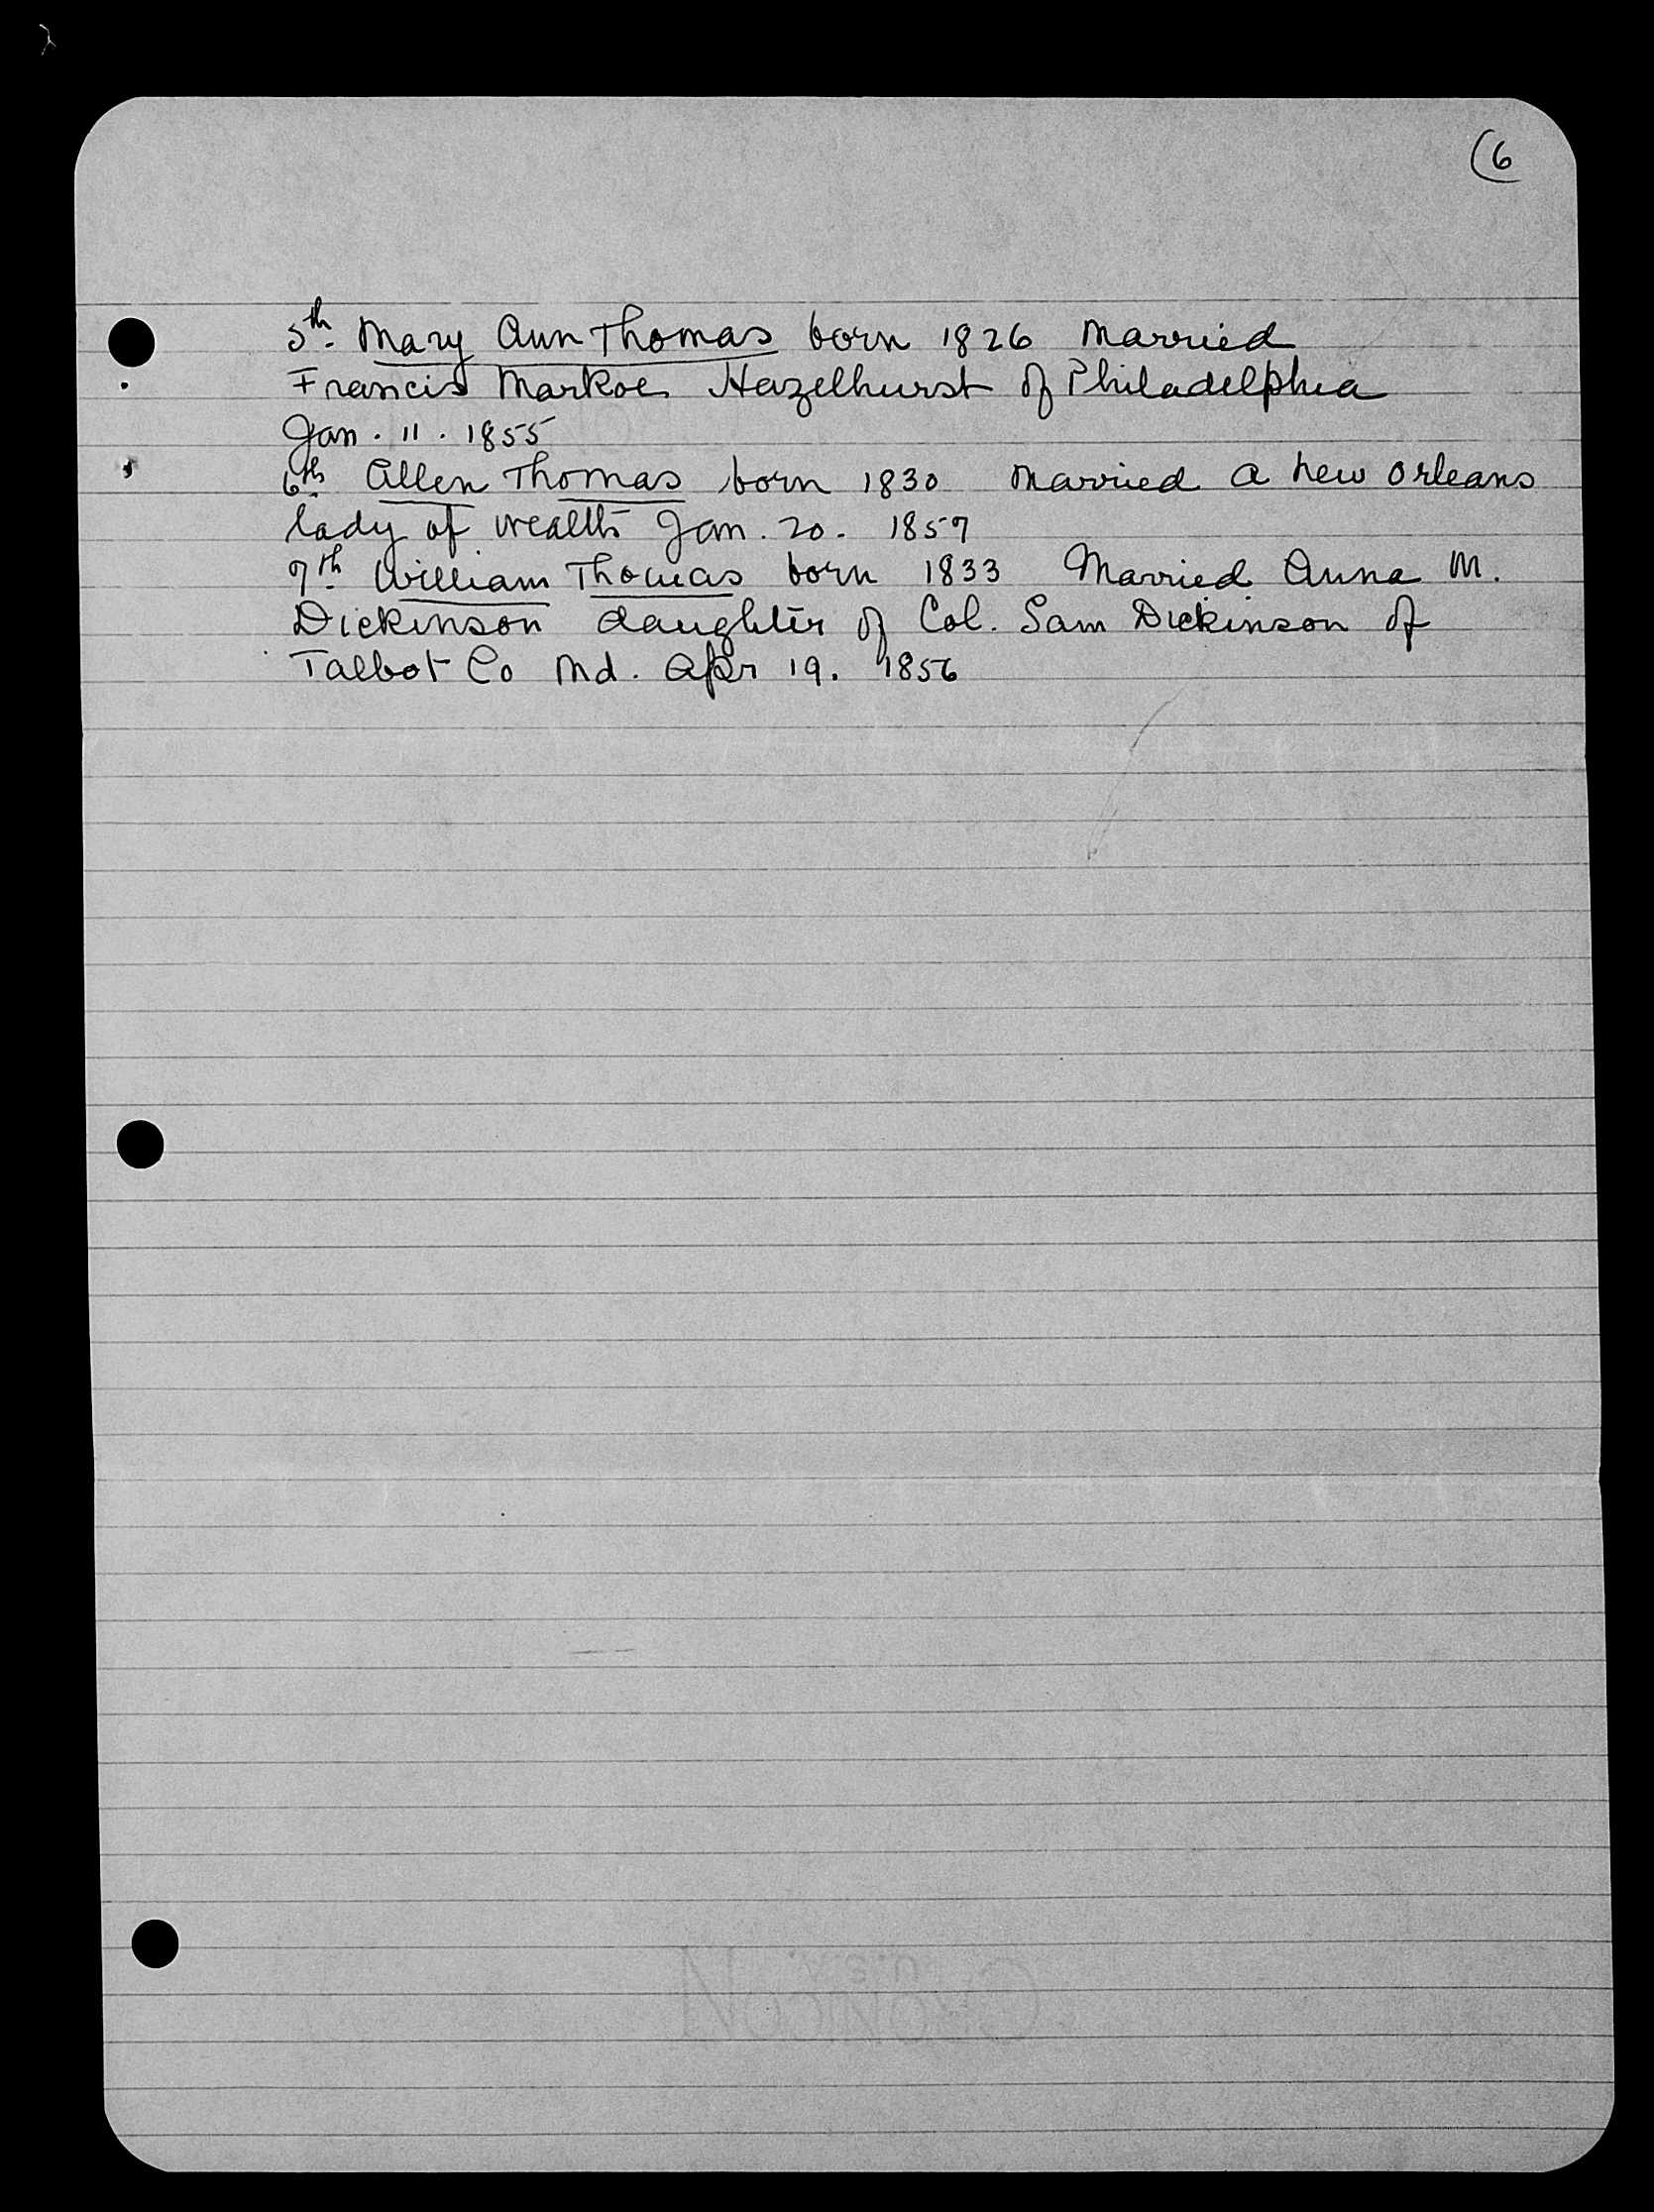 (6
5th. Mary Ann Thomas born 1826 Married
Francis Markoe Hazelhurst of Philadelphia
Jan. 11. 1855
6th. Allen Thomas born 1830 Married a New Orleans
lady of wealth Jan. 20. 1857
7th. William Thomas born 1833 Married Anna M.
Dickinson daughter of Col. Sam Dickinson of
Talbot Co Md. Apr 19. 1856